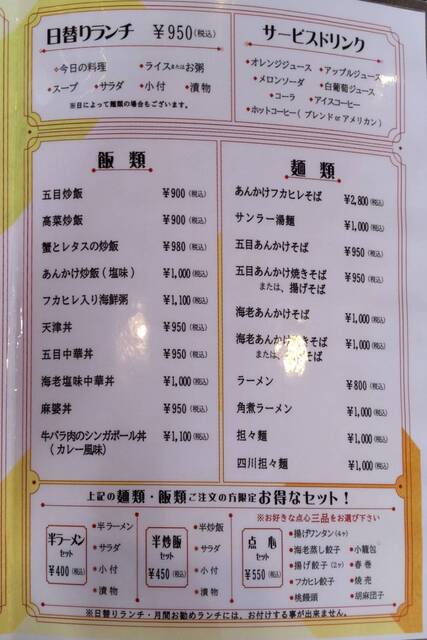 日替りランチ ￥950(税込)
◆今日の料理 ◆ライスまたはお粥
◆スープ ◆サラダ ◆小付 ◆漬物
※日によって麺類の場合もございます。
サービスドリンク
◆オレンジジュース ◆アップルジュース
◆メロンソーダ ◆白葡萄ジュース
◆コーラ ◆アイスコーヒー
◆ホットコーヒー(ブレンド or アメリカン)
飯類
五目炒飯 ￥900(税込)
高菜炒飯 ￥900(税込)
蟹とレタスの炒飯 ￥980(税込)
あんかけ炒飯(塩味) ￥1,000(税込)
フカヒレ入り海鮮粥 ￥1,100(税込)
天津丼 ￥950(税込)
五目中華丼 ￥950(税込)
海老塩味中華丼 ￥1,000(税込)
麻婆丼 ￥950(税込)
牛バラ肉のシンガポール丼 ￥1,100(税込)
(カレー風味)
麺類
あんかけフカヒレそば ￥2,800(税込)
サンラー湯麺 ￥1,000(税込)
五目あんかけそば ￥950(税込)
五目あんかけ焼きそば ￥1,000(税込)
または、揚げそば
海老あんかけそば ￥1,000(税込)
海老あんかけ そば ￥1,000(税込)
または、 そば
ラーメン ￥800(税込)
角煮ラーメン ￥1,000(税込)
担々麺 ￥1,000(税込)
四川担々麺 ￥1,000(税込)
上記の麺類・飯類ご注文の方限定 お得なセット！
半ラーメン
セット
￥400(税込)
◆半ラーメン
◆サラダ
◆小付
◆漬物
半炒飯
セット
￥450(税込)
◆半炒飯
◆サラダ
◆小付
◆漬物
※お好きな点心三品をお選び下さい
点心
セット
￥550(税込)
◆揚げワンタン(4ヶ)
◆海老蒸し餃子 ◆小籠包
◆揚げ餃子(2ヶ) ◆春巻
◆フカヒレ餃子 ◆焼売
◆桃饅頭 ◆胡麻団子
※日替りランチ・月間お勧めランチには、お付けする事が出来ません。